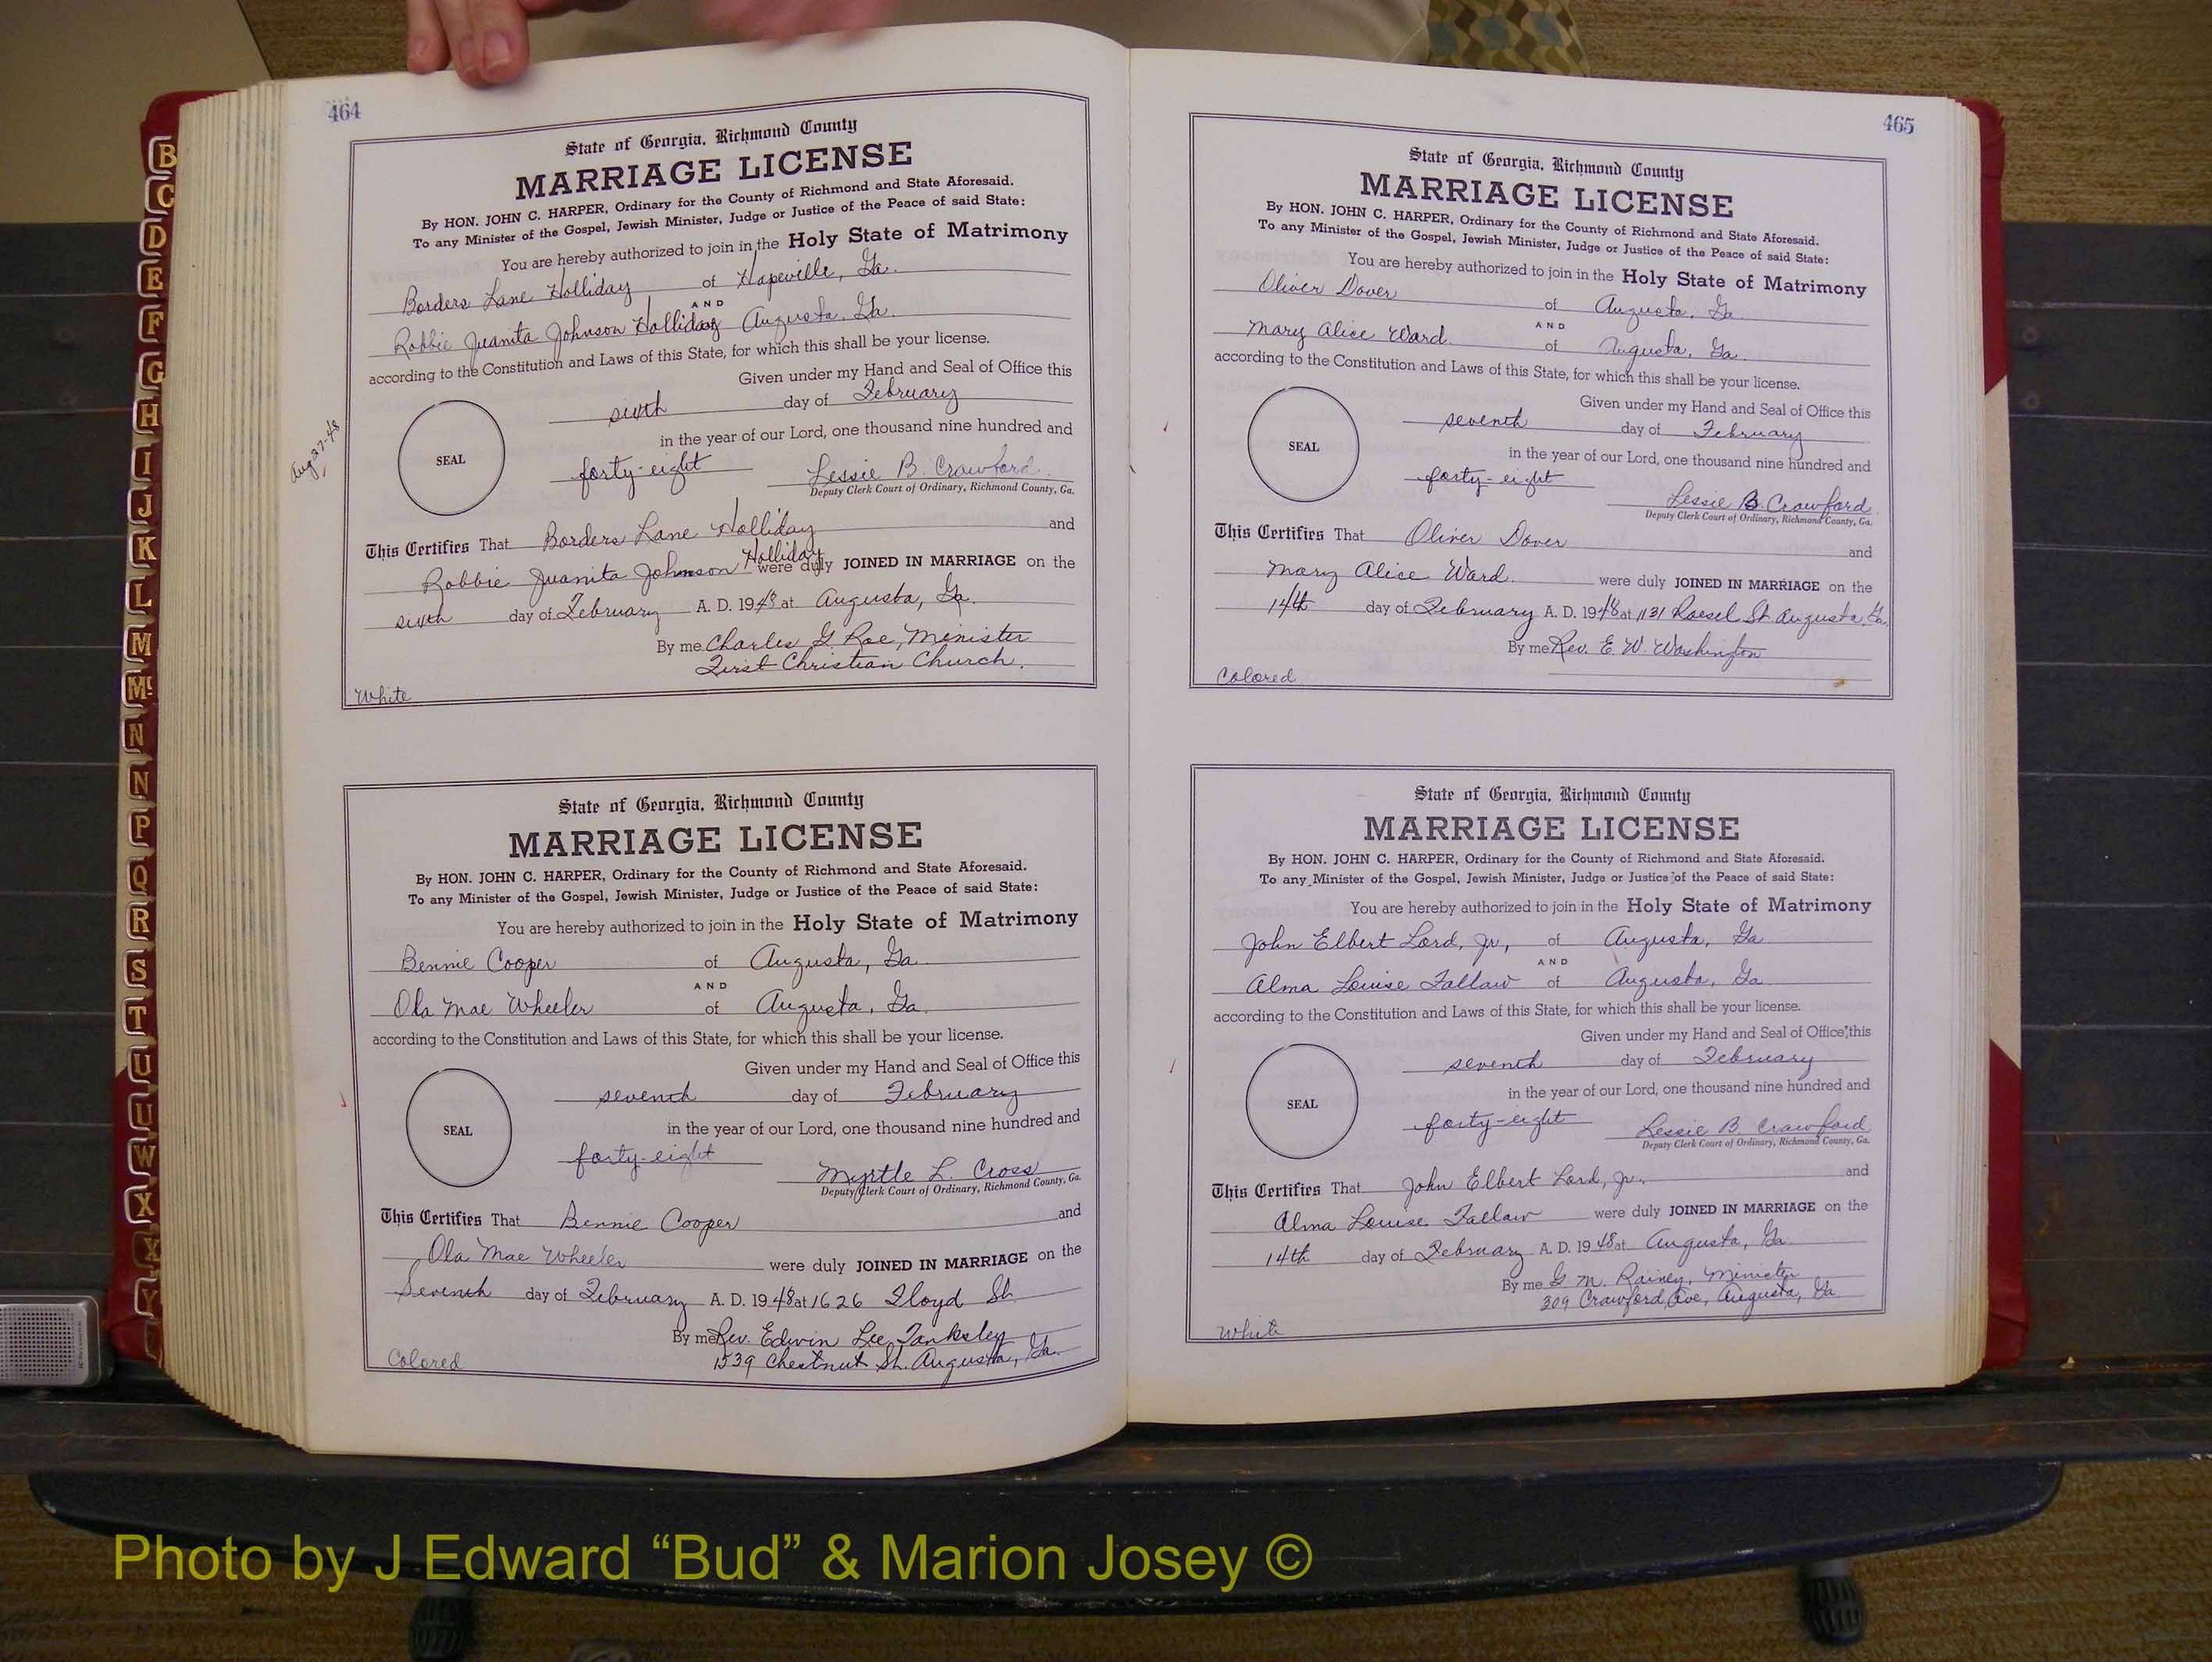 B
C
D
E
F
G
H
I
J
K
L
M
Mc
N
N
P
Q
R
S
T
U
U
W
X
X
Y
464
State of Georgia, Richmond County
MARRIAGE LICENSE
By HON. JOHN C. HARPER, Ordinary for the County of Richmond and State Aforesaid.
To any Minister of the Gospel, Jewish Minister, Judge or Justice of the Peace of said State:
You are hereby authorized to join in the Holy State of Matrimony
Borders Lane Holliday of Hapeville, Ga.
AND
Robbie Juanita Johnson Holliday Augusta, Ga.
according to the Constitution and Laws of this State, for which this shall be your license.
Given under my Hand and Seal of Office this
sixth day of February
in the year of our Lord, one thousand nine hundred and
SEAL
forty-eight Lessie B. Crawford
Deputy Clerk Court of Ordinary, Richmond County, Ga.
This Certifies That Borders Lane Holliday and
Robbie Juanita Johnson Holliday were duly JOINED IN MARRIAGE on the
sixth day of February A. D. 1948 at Augusta, Ga.
By me Charles G. Roe, Minister
First Christian Church.
White
State of Georgia, Richmond County
MARRIAGE LICENSE
By HON. JOHN C. HARPER, Ordinary for the County of Richmond and State Aforesaid.
To any Minister of the Gospel, Jewish Minister, Judge or Justice of the Peace of said State:
You are hereby authorized to join in the Holy State of Matrimony
Bennie Cooper of Augusta, Ga.
AND
Ola Mae Wheeler of Augusta, Ga.
according to the Constitution and Laws of this State, for which this shall be your license.
Given under my Hand and Seal of Office this
seventh day of February
in the year of our Lord, one thousand nine hundred and
SEAL
forty-eight Myrtle L. Cross
Deputy Clerk Court of Ordinary, Richmond County, Ga.
This Certifies That Bennie Cooper and
Ola Mae Wheeler were duly JOINED IN MARRIAGE on the
Seventh day of February A. D. 1948 at 1626 Floyd St.
By me Rev. Edwin Lee Tanksley
1539 Chestnut St. Augusta, Ga.
Colored
465
State of Georgia, Richmond County
MARRIAGE LICENSE
By HON. JOHN C. HARPER, Ordinary for the County of Richmond and State Aforesaid.
To any Minister of the Gospel, Jewish Minister, Judge or Justice of the Peace of said State:
You are hereby authorized to join in the Holy State of Matrimony
Oliver Dover of Augusta, Ga.
AND
Mary Alice Ward of Augusta, Ga.
according to the Constitution and Laws of this State, for which this shall be your license.
Given under my Hand and Seal of Office this
seventh day of February
SEAL
in the year of our Lord, one thousand nine hundred and
forty-eight Lessie B. Crawford
Deputy Clerk Court of Ordinary, Richmond County, Ga.
This Certifies That Oliver Dover and
Mary Alice Ward were duly JOINED IN MARRIAGE on the
14th day of February A. D. 1948 at 1131 Roesel St. Augusta, Ga.
By me Rev. E. W. Washington
Colored
State of Georgia, Richmond County
MARRIAGE LICENSE
By HON. JOHN C. HARPER, Ordinary for the County of Richmond and State Aforesaid.
To any Minister of the Gospel, Jewish Minister, Judge or Justice of the Peace of said State:
You are hereby authorized to join in the Holy State of Matrimony
John Elbert Lord, Jr., of Augusta, Ga.
AND
Alma Louise Fallaw of Augusta, Ga.
according to the Constitution and Laws of this State, for which this shall be your license.
Given under my Hand and Seal of Office this
seventh day of February
in the year of our Lord, one thousand nine hundred and
SEAL
forty-eight Lessie B Crawford
Deputy Clerk Court of Ordinary, Richmond County, Ga.
This Certifies That John Elbert Lord, Jr. and
Alma Louise Fallaw were duly JOINED IN MARRIAGE on the
14th day of February A. D. 1948 at Augusta, Ga.
By me G. M. Rainey, Minister
309 Crawford Ave, Augusta, Ga.
White
Photo by J Edward “Bud” & Marion Josey ©